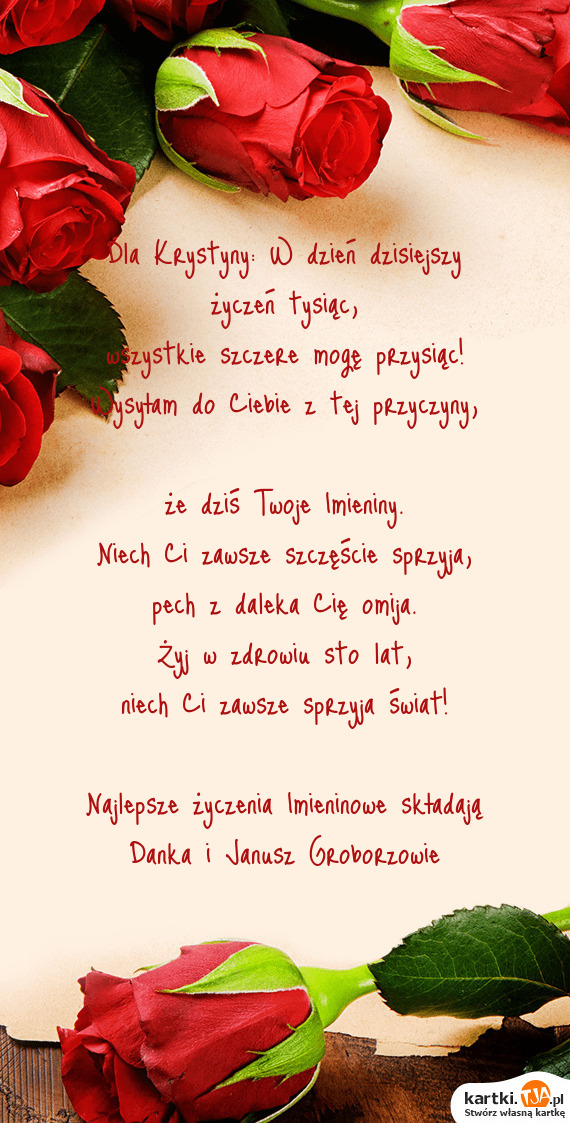 Dla Krystyny: W dzień dzisiejszy
życzeń tysiąc,
wszystkie szczere mogę przysiąc!
Wysyłam do Ciebie z tej przyczyny,
że dziś Twoje Imieniny.
Niech Ci zawsze szczęście sprzyja,
pech z daleka Cię omija.
Żyj w zdrowiu sto lat,
niech Ci zawsze sprzyja świat!
Najlepsze życzenia Imieninowe składają
Danka i Janusz Groborzowie
kartki.TJA.pl
Stwórz własną kartkę